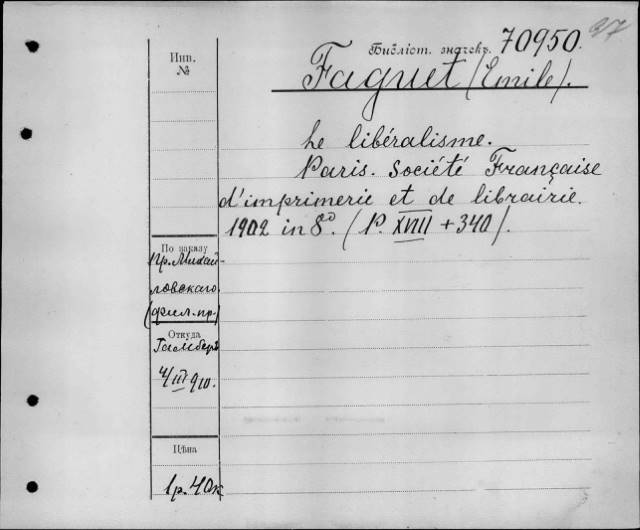 97
Библіот. значекъ. 70950.
Инв.
№
Faguet (Emile).
Le libéralisme.
Paris. Société Française
d'imprimerie et de librairie.
1902 in 8º. (P. XVIII + 340).
По заказу
Пр. Михай-
ловскаго
(фил. пр.)
Откуда
Гамберъ
4/III 910.
Цѣна
1р. 40к